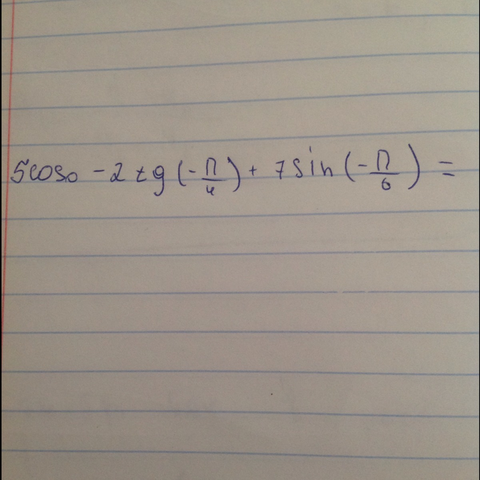 5cos0 - 2tg(-π/4) + 7sin(-π/6) =